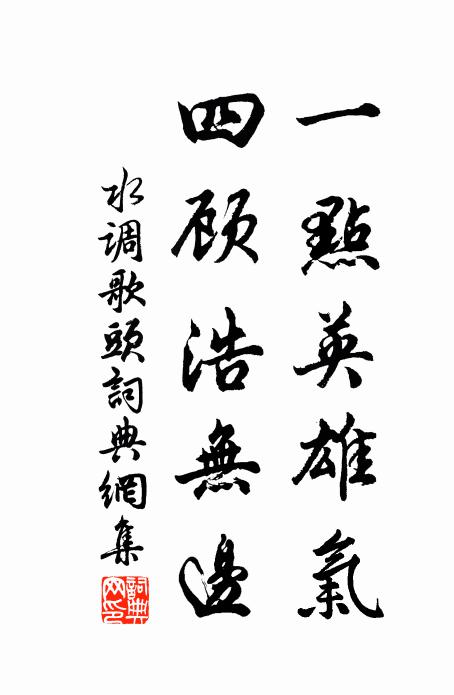 一點英雄氣
四顾浩無邊
水调歌頭詞典網集
詞典網印